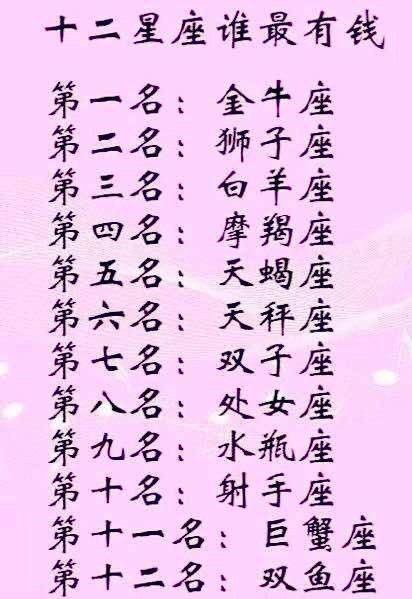 十二星座谁最有钱
第一名：金牛座
第二名：狮子座
第三名：白羊座
第四名：摩羯座
第五名：天蝎座
第六名：天秤座
第七名：双子座
第八名：处女座
第九名：水瓶座
第十名：射手座
第十一名：巨蟹座
第十二名：双鱼座